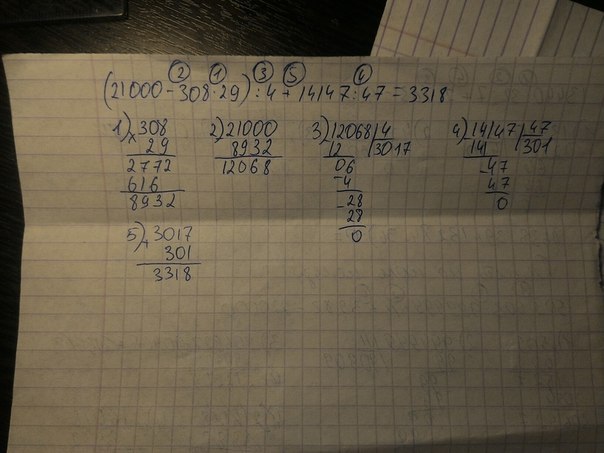 ② ① ③ ⑤ ④
(21000-308·29):4+14147:47=3318
1) ×308 2) 21000 3) 12068|4 4) 14147|47
29 8932 12 3017 141 301
2772 12068 06 -47
616 -4 47
8932 -28 0
28
0
5) +3017
301
3318